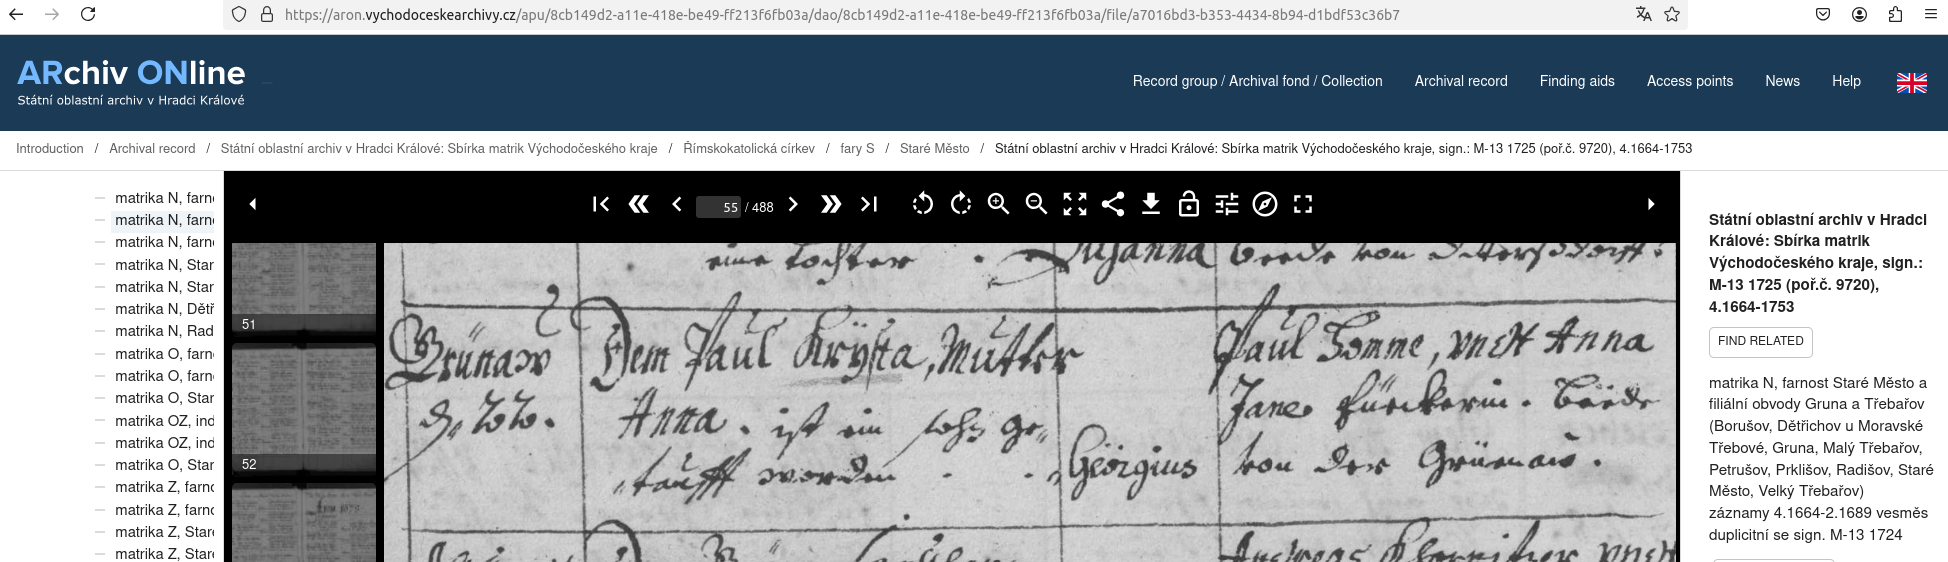 https://aron.vychodoceskearchivy.cz/apu/8cb149d2-a11e-418e-be49-ff213f6fb03a/dao/8cb149d2-a11e-418e-be49-ff213f6fb03a/file/a7016bd3-b353-4434-8b94-d1bdf53c36b7
ARchiv ONline
Státní oblastní archiv v Hradci Králové
Record group / Archival fond / Collection Archival record Finding aids Access points News Help
Introduction / Archival record / Státní oblastní archiv v Hradci Králové: Sbírka matrik Východočeského kraje / Římskokatolická církev / fary S / Staré Město / Státní oblastní archiv v Hradci Králové: Sbírka matrik Východočeského kraje, sign.: M-13 1725 (poř.č. 9720), 4.1664-1753
matrika N, farn
matrika N, farn
matrika N, farn
matrika N, Star
matrika N, Star
matrika N, Dětř
matrika N, Rad
matrika O, farn
matrika O, farn
matrika O, Star
matrika OZ, ind
matrika OZ, ind
matrika O, Star
matrika Z, farn
matrika Z, farn
matrika Z, Star
matrika Z, Star
55 / 488
51
52
eine tochter Susanna beede von
Grünaw Dem Paul Krysta, Mutter Paul Tomme, vndt Anna
d. 22. Anna. ist ein sohn ge- Jane beede
taufft worden Geörgius von der Grünaw.
Andreas vndt
Státní oblastní archiv v Hradci
Králové: Sbírka matrik
Východočeského kraje, sign.:
M-13 1725 (poř.č. 9720),
4.1664-1753
FIND RELATED
matrika N, farnost Staré Město a
filiální obvody Gruna a Třebařov
(Borušov, Dětřichov u Moravské
Třebové, Gruna, Malý Třebařov,
Petrušov, Prklišov, Radišov, Staré
Město, Velký Třebařov)
záznamy 4.1664-2.1689 vesměs
duplicitní se sign. M-13 1724